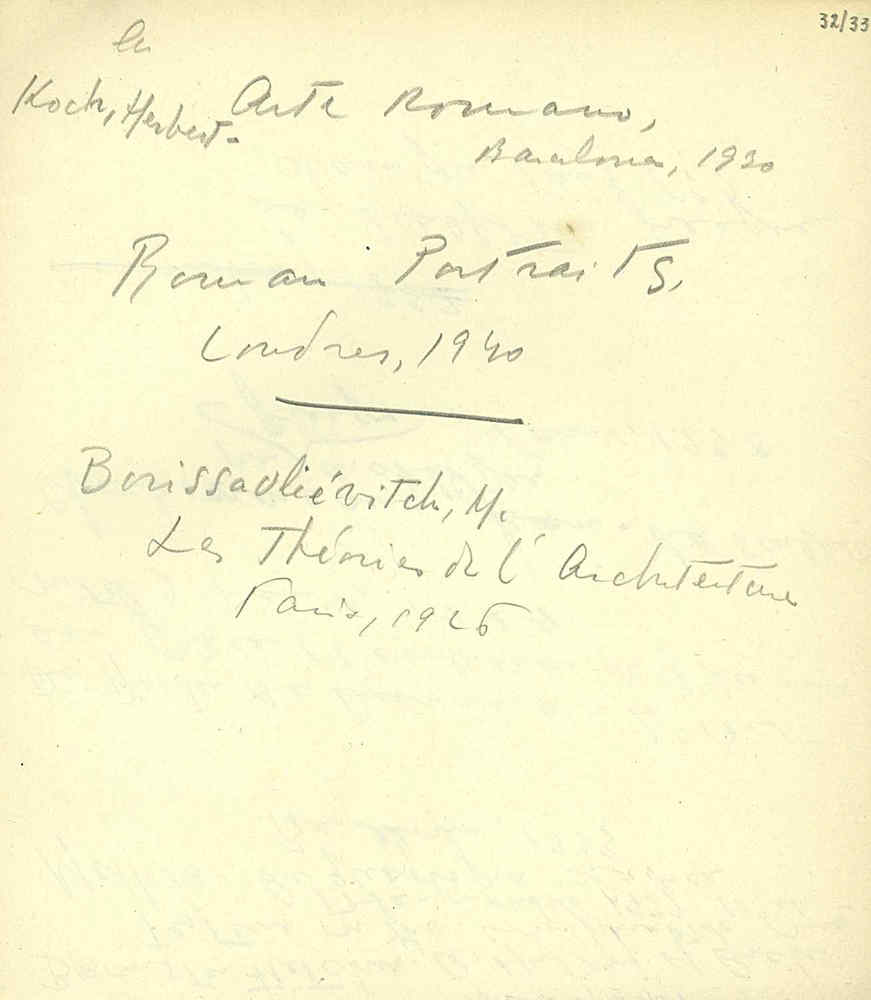 32/33
en
Koch, Herbert. Arte Romano,
Barcelona, 1930
Roman Portraits,
Londres, 1940
Borissavliévitch, M.
Les Théories de l'Architecture
Paris, 1926